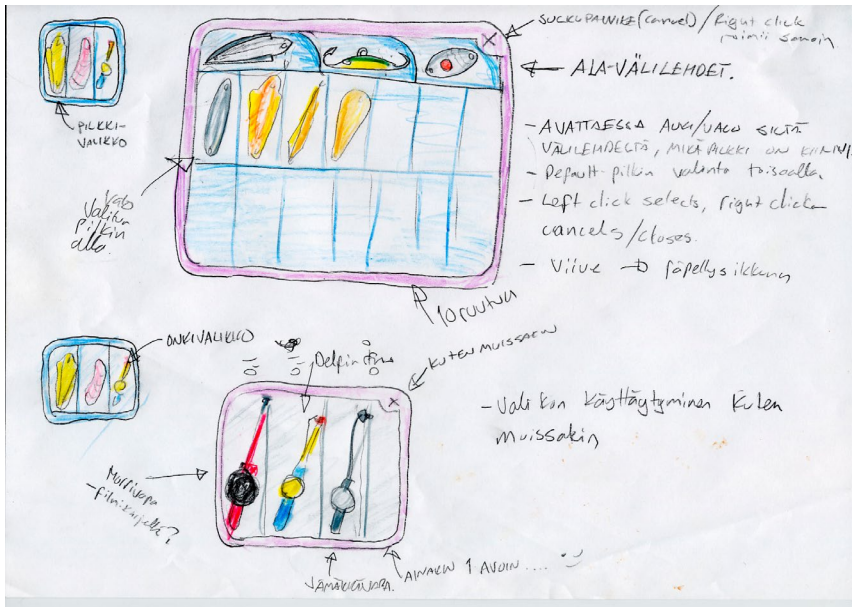 SULKUPAINIKE (cancel) / Right click
toimii samoin
ALA-VÄLILEHDET.
PILKKI-
VALIKKO
- AVATTAESSA AUKI/VALO SILTÄ
VÄLILEHDELTÄ, MIKÄ PILKKI ON KIINNI.
- Default-pilkin valinta toisaalla
- Left click selects, right click
cancels/closes.
- Viive → räpellysikkuna
Valo
Valitun
pilkin
alla.
10 ruutua
ONKIVALIKKO
Delfin
KUTEN MUISSAKIN
x
- Valikon käyttäytyminen kuten
muissakin
Morrivapa
?
AINAKIN 1 AVOIN ....